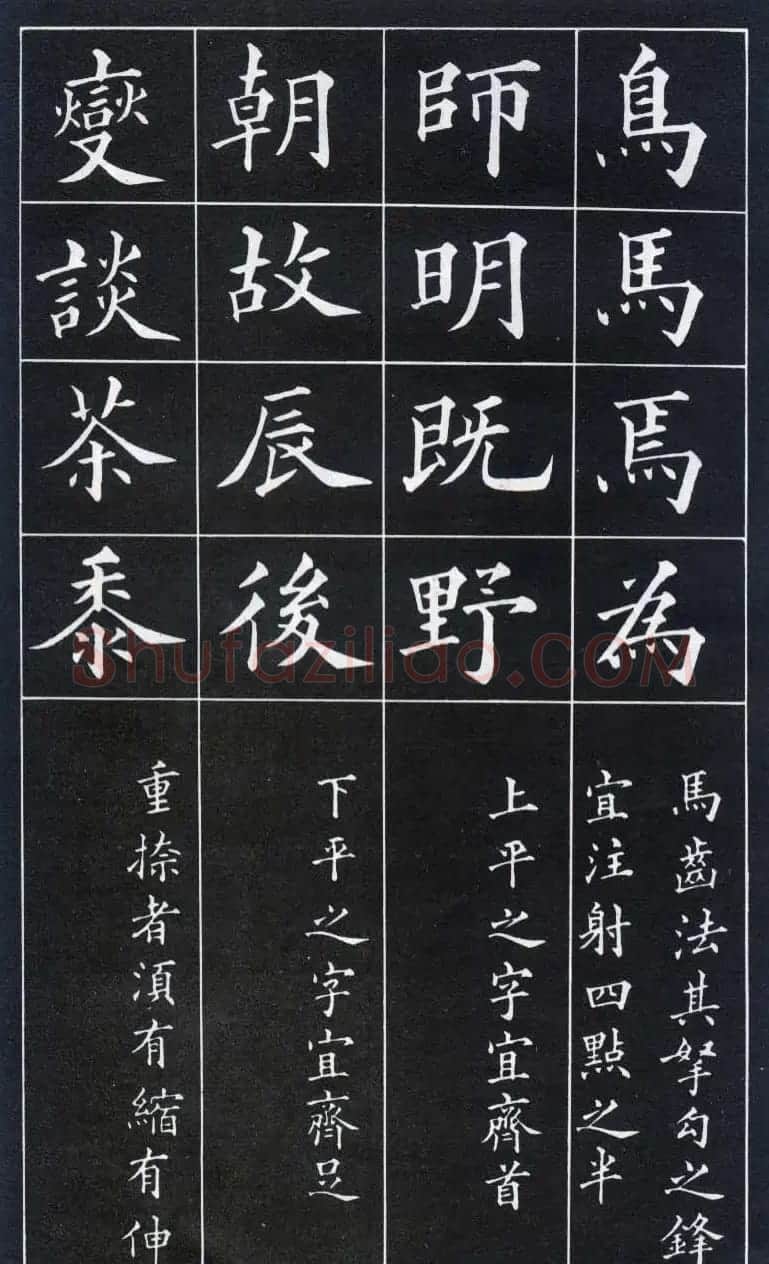 鳥馬焉為
馬齒法其挐勾之鋒
宜注射四點之半
師明既野
上平之字宜齊首
朝故辰後
下平之字宜齊足
變談茶黍
重捺者須有縮有伸
Shufaziliao.COM